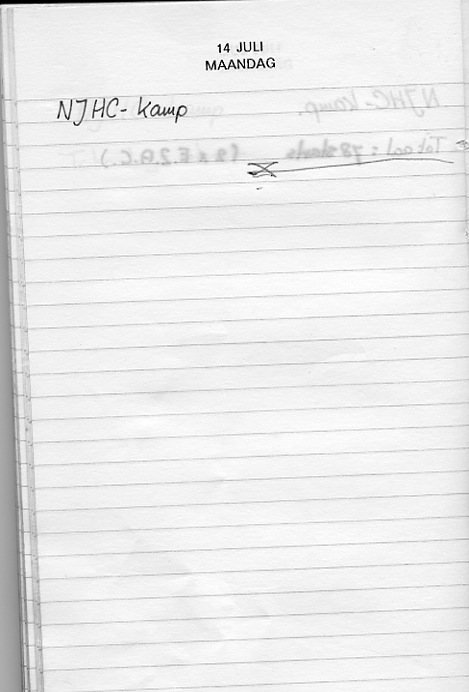 14 JULI
MAANDAG
NJHC-kamp